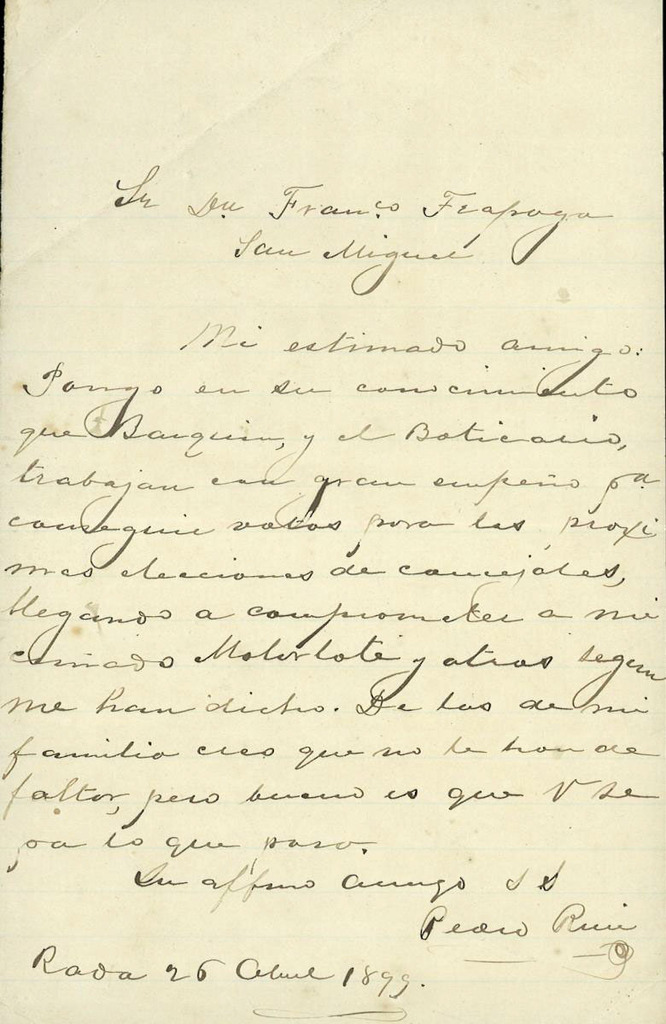 Sr Dn Franco Frapaga
San Miguel
Mi estimado amigo:
Pongo en su conocimiento
que Barquin, y el Boticario,
trabajan con gran empeño pa
conseguir votos para las proxi
mas elecciones de concejales,
llegando a comprometer a mi
cuñado y otros segun
me han dicho. De los de mi
familia creo que no le han de
faltar, pero bueno es que V se
pa lo que pasa.
Su affmo amigo S S
Pedro Ruiz
Rada 26 Abril 1899.